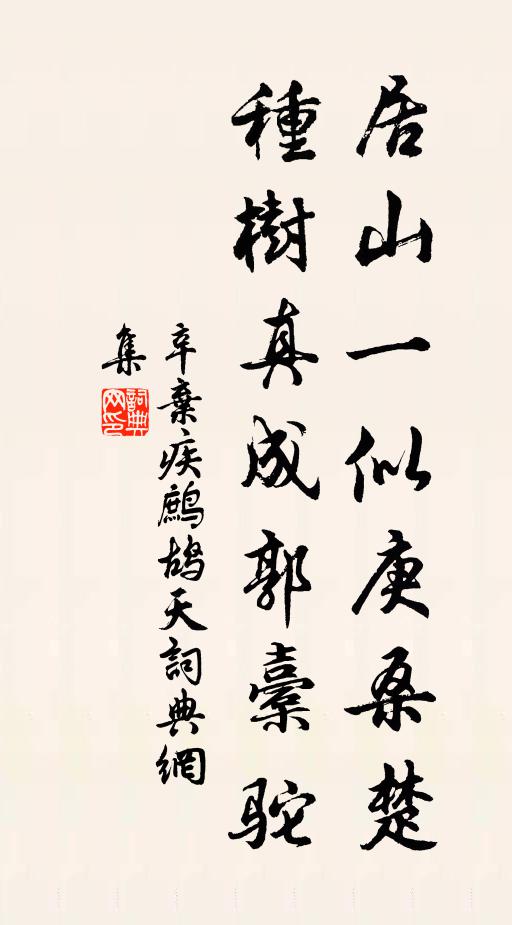 居山一似庚桑楚
種樹真成郭橐駝
辛棄疾鷓鴣天詞典網
集
詞典網印